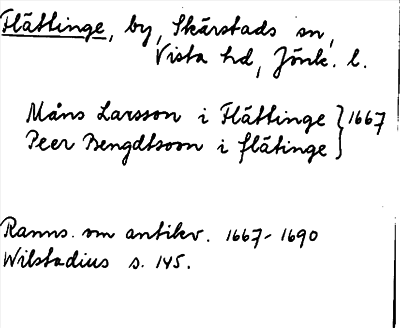 Flättinge, by, Skärstads sn,
Vista hd, Jönk. l.
Måns Larsson i Flättinge } 1667
Peer Bengdtsson i flätinge
Ranns. om antikv. 1667-1690
Wilstadius s. 145.